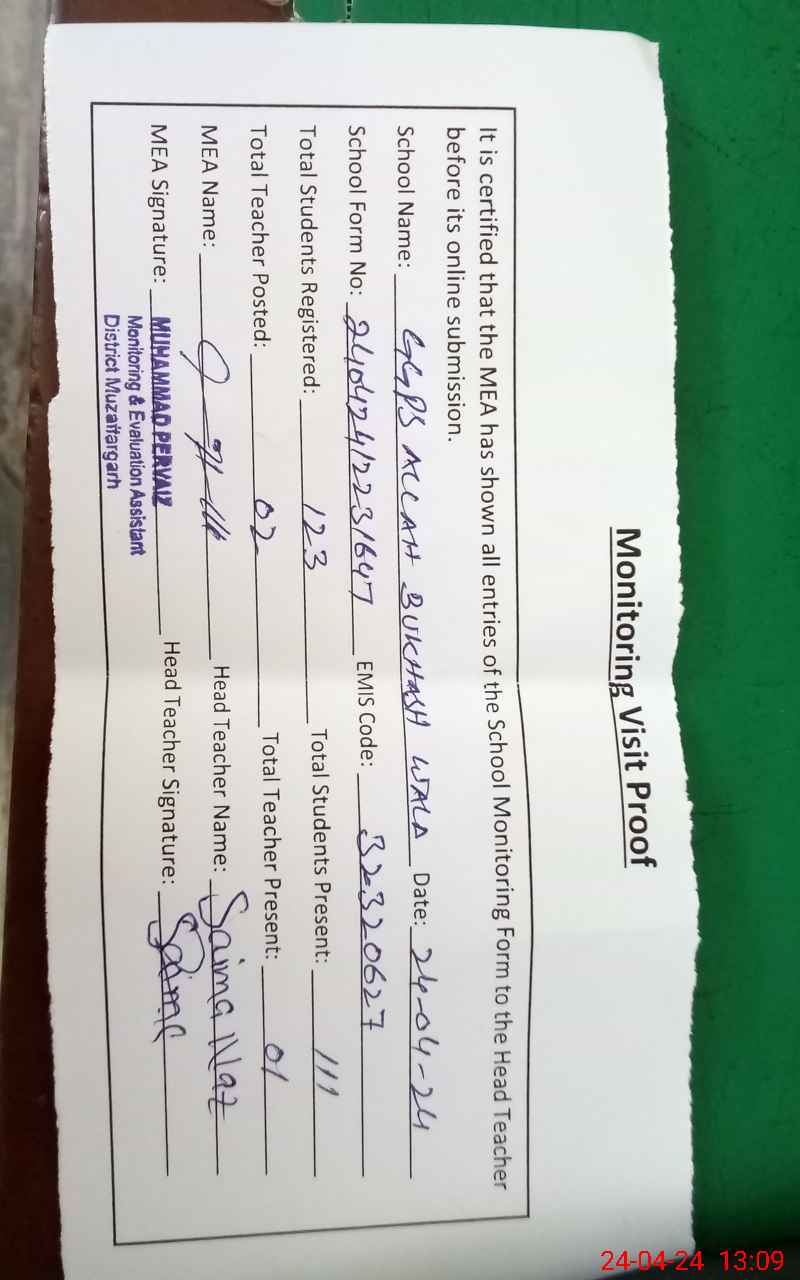 Monitoring Visit Proof
It is certified that the MEA has shown all entries of the School Monitoring Form to the Head Teacher
before its online submission.
School Name: GGPS ALLAH BUKHASH WALA Date: 24-04-24
School Form No: 24042412231647 EMIS Code: 32320627
Total Students Registered: 123 Total Students Present: 111
Total Teacher Posted: 02 Total Teacher Present: 01
MEA Name: Head Teacher Name: Saima Naz
MEA Signature: MUHAMMAD PERVAIZ Head Teacher Signature: Saima
Monitoring & Evaluation Assistant
District Muzaffargarh
24-04-24 13:09